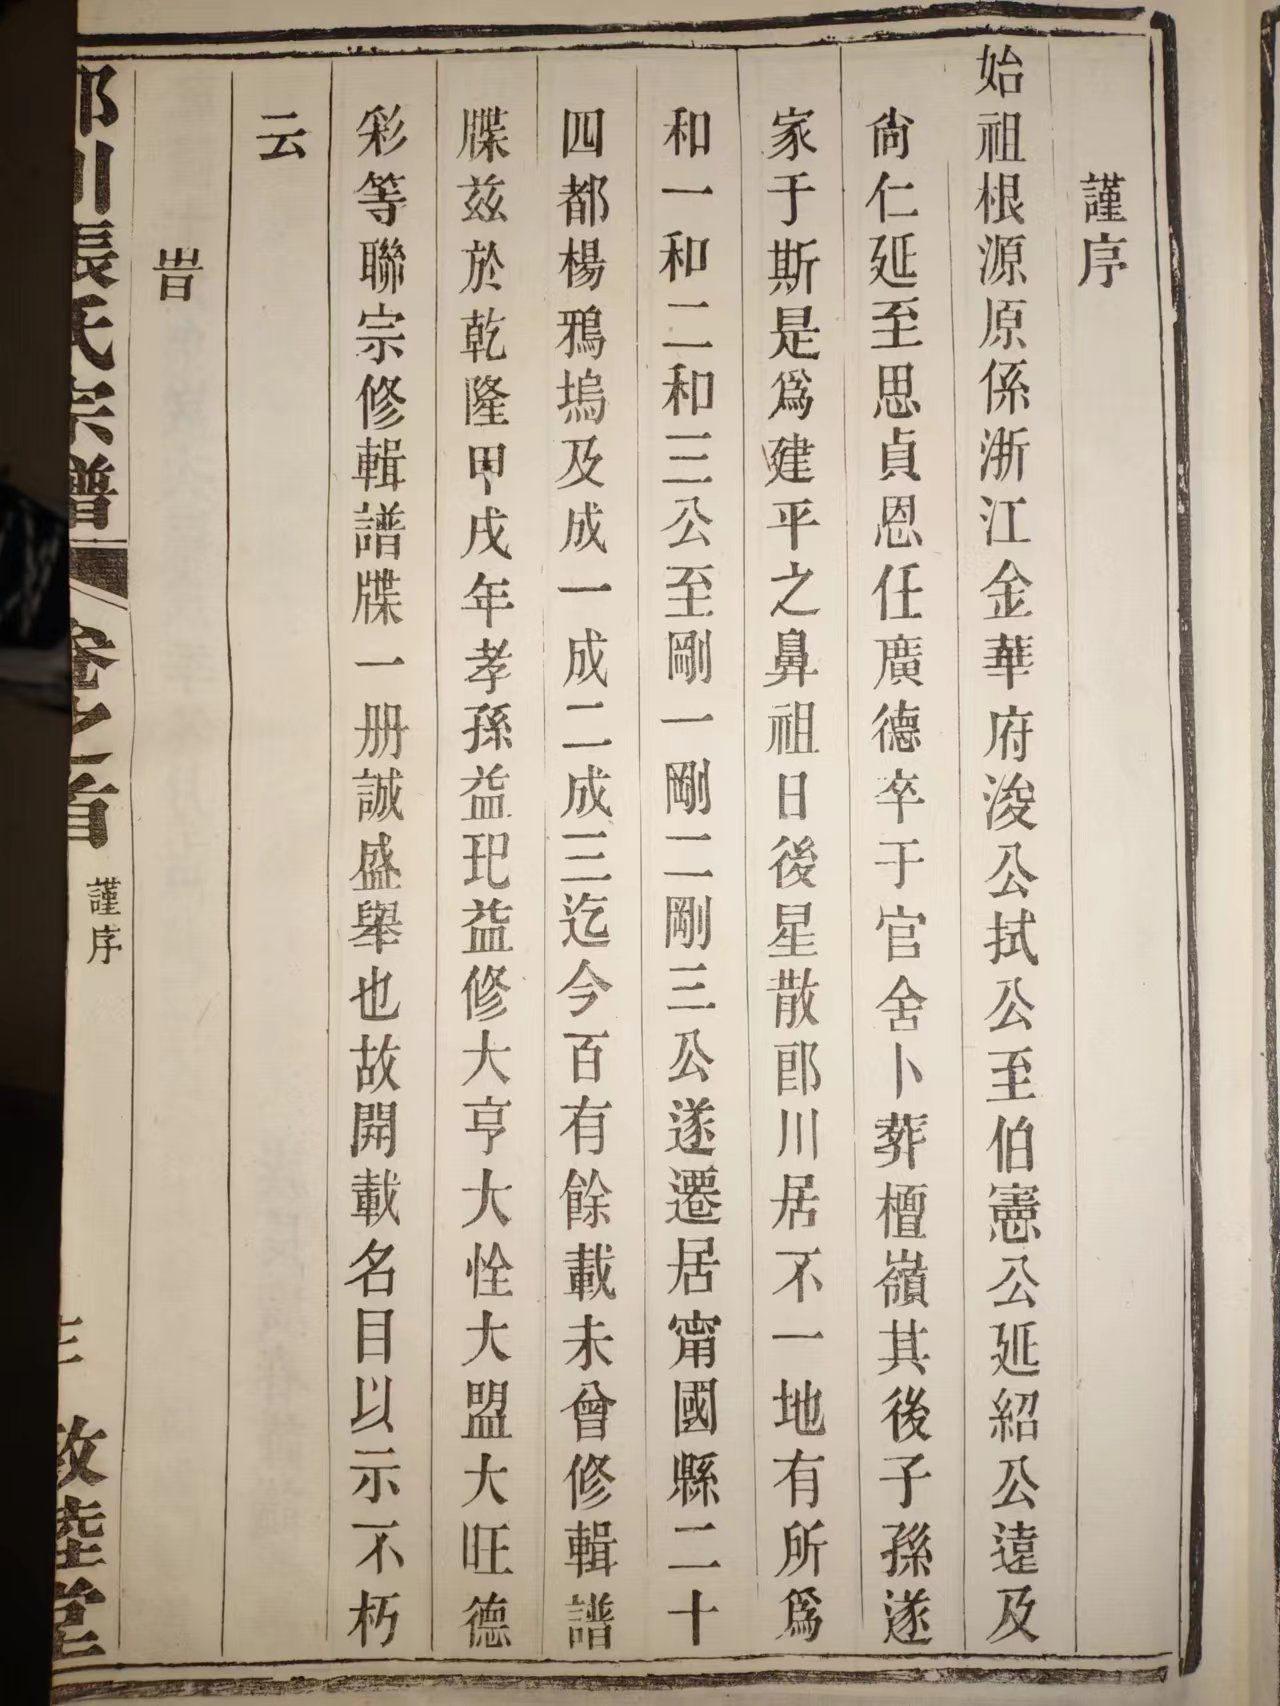 謹序
始祖根源原係浙江金華府浚公拭公至伯憲公延紹公遠及
尙仁延至思貞恩任廣德卒于官舍卜葬檀嶺其後子孫遂
家于斯是爲建平之鼻祖日後星散郎川居不一地有所爲
和一和二和三公至剛一剛二剛三公遂遷居甯國縣二十
四都楊鴉塢及成一成二成三迄今百有餘載未曾修輯譜
牒兹於乾隆甲戌年孝孫益玘益修大亨大恮大盟大旺德
彩等聯宗修輯譜牒一册誠盛舉也故開載名目以示不朽
云
旹
郎川張氏宗譜
卷之首
謹序
敦睦堂